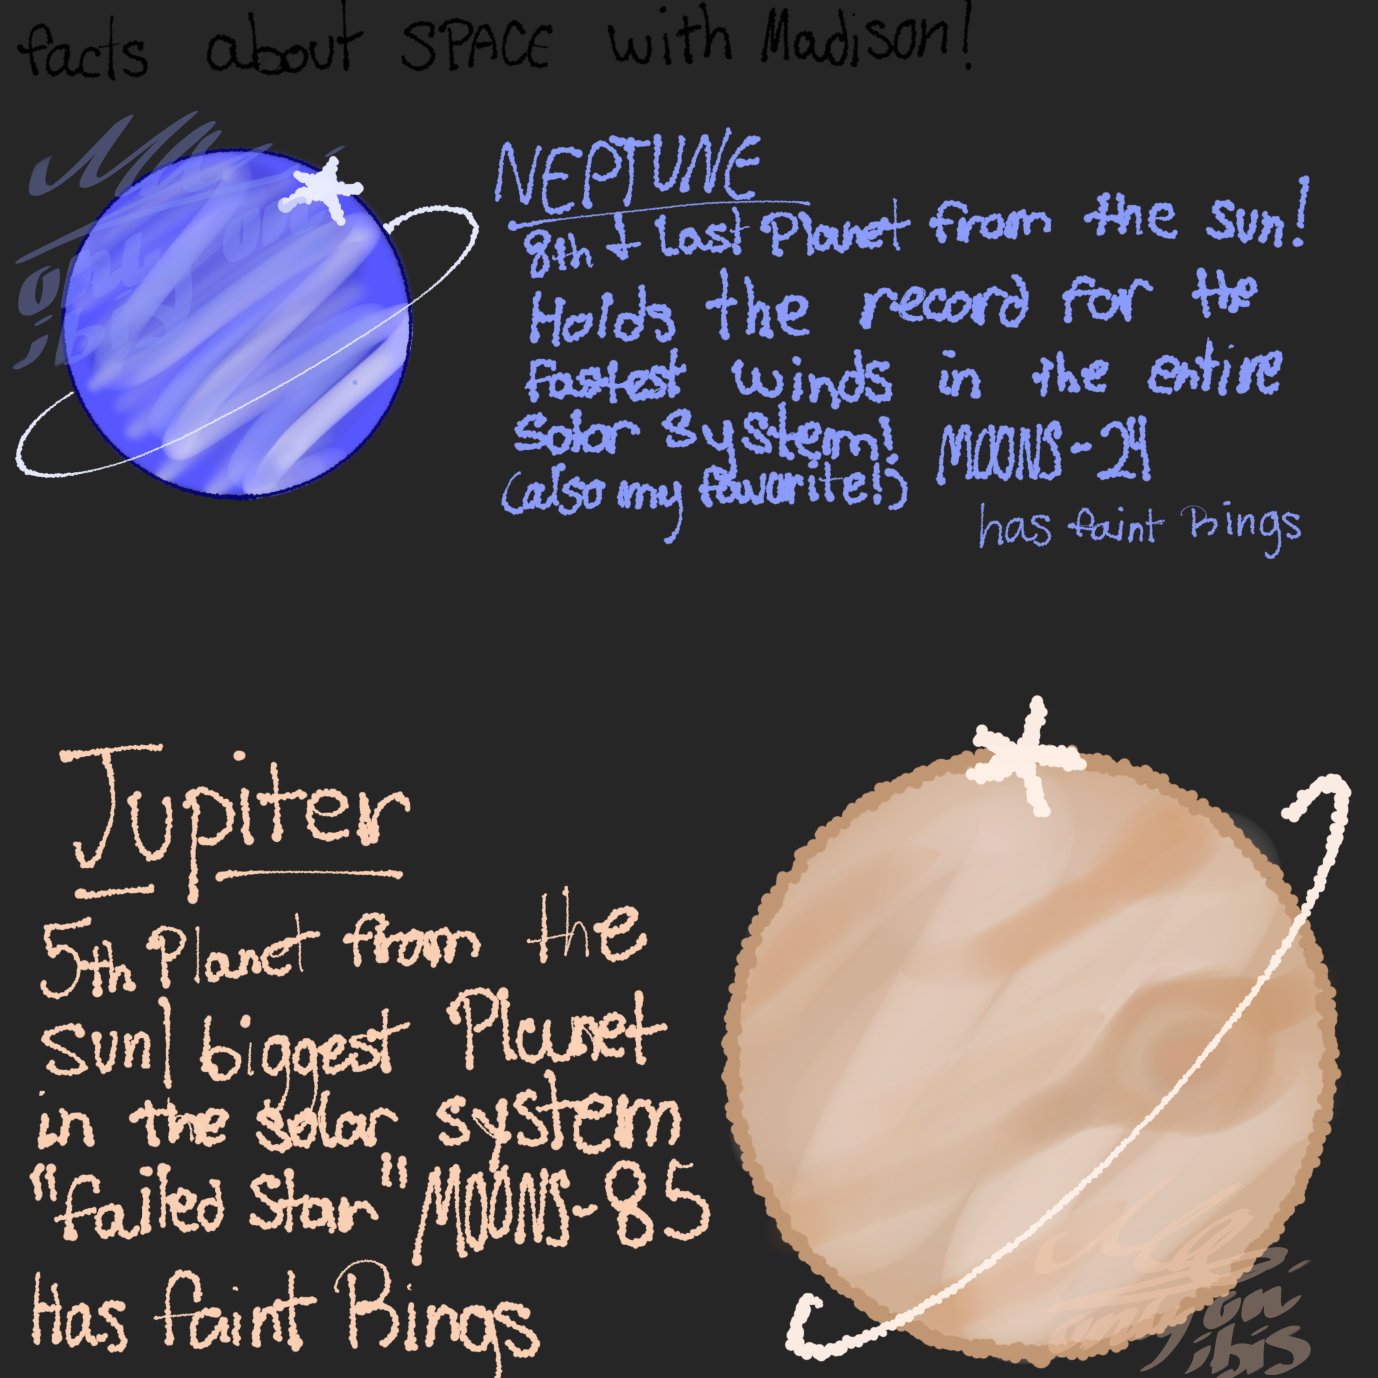 facts about SPACE with Madison!
NEPTUNE
8th + Last Planet from the sun!
Holds the record for the
fastest winds in the entire
solar system! MOONS-24
(also my favorite!)
has faint Rings
only on
ibis
Jupiter
5th Planet from the
sun| biggest Planet
in the solar system
"failed star" MOONS-85
Has faint Rings
only on
ibis